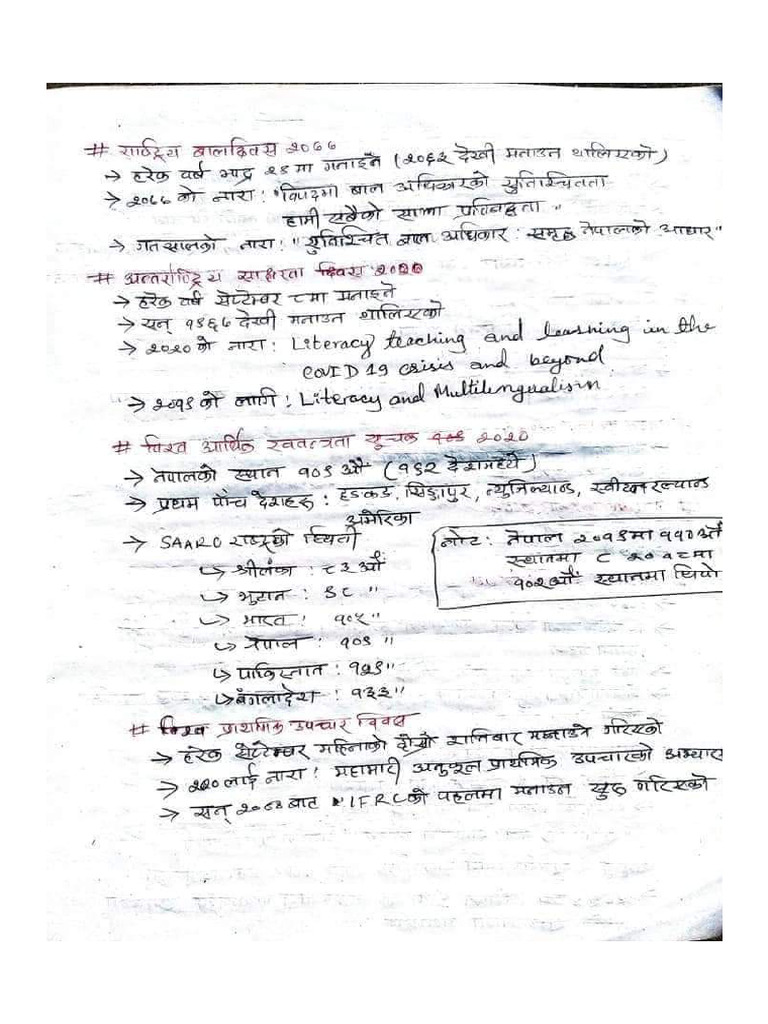 # राष्ट्रिय बालदिवस २०७७
→ हरेक वर्ष भाद्र २९ मा मनाइने (२०६२ देखी मनाउन थालिएको)
→ २०७७ को नारा: "विपदमा बाल अधिकारको सुनिश्चितता
हामी सबैको साझा प्रतिवद्धता"
→ गतसालको नारा: "सुनिश्चित बाल अधिकार: समृद्ध नेपालको आधार"
# अन्तर्राष्ट्रिय साक्षरता दिवस २०२०
→ हरेक वर्ष सेप्टेम्बर ८मा मनाइने
→ सन् १९६७ देखी मनाउन थालिएको
→ २०२० को नारा: Literacy teaching and learning in the
COVID 19 crisis and beyond
→ २०१९ को लागी: Literacy and Multilingualism
# विश्व आर्थिक स्वतन्त्रता सूचक २०२०
→ नेपालको स्थान १०९ औं (१६२ देशमध्ये)
→ प्रथम पाँच देशहरू: हङकङ, सिङ्गापुर, न्युजिल्यान्ड, स्वीटजरल्यान्ड
अमेरिका
→ SAARC राष्ट्रको स्थिती
↳ श्रीलंका: ८३ औं
↳ भुटान: ९८ "
↳ भारत: १०५ "
↳ नेपाल: १०९ "
↳ पाकिस्तान: १२९ "
↳ बंगलादेश: १३३ "
नोट: नेपाल २०१९मा ११०औं
स्थानमा र २०१८मा
१०२औं स्थानमा थियो
# विश्व प्राथमिक उपचार दिवस
→ हरेक सेप्टेम्बर महिनाको दोस्रो शनिबार मनाउने गरिएको
→ २०२० लाई नारा: महामारी अनुकूल प्राथमिक उपचारको अभ्यास
→ सन् २००० बाट IFRC को पहलमा मनाउन सुरु गरिएको